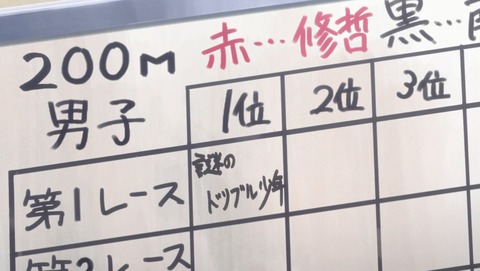 200M 赤…修哲 黒…
男子 1位 2位 3位
第1レース 謎の
ドリブル少年
第2レース